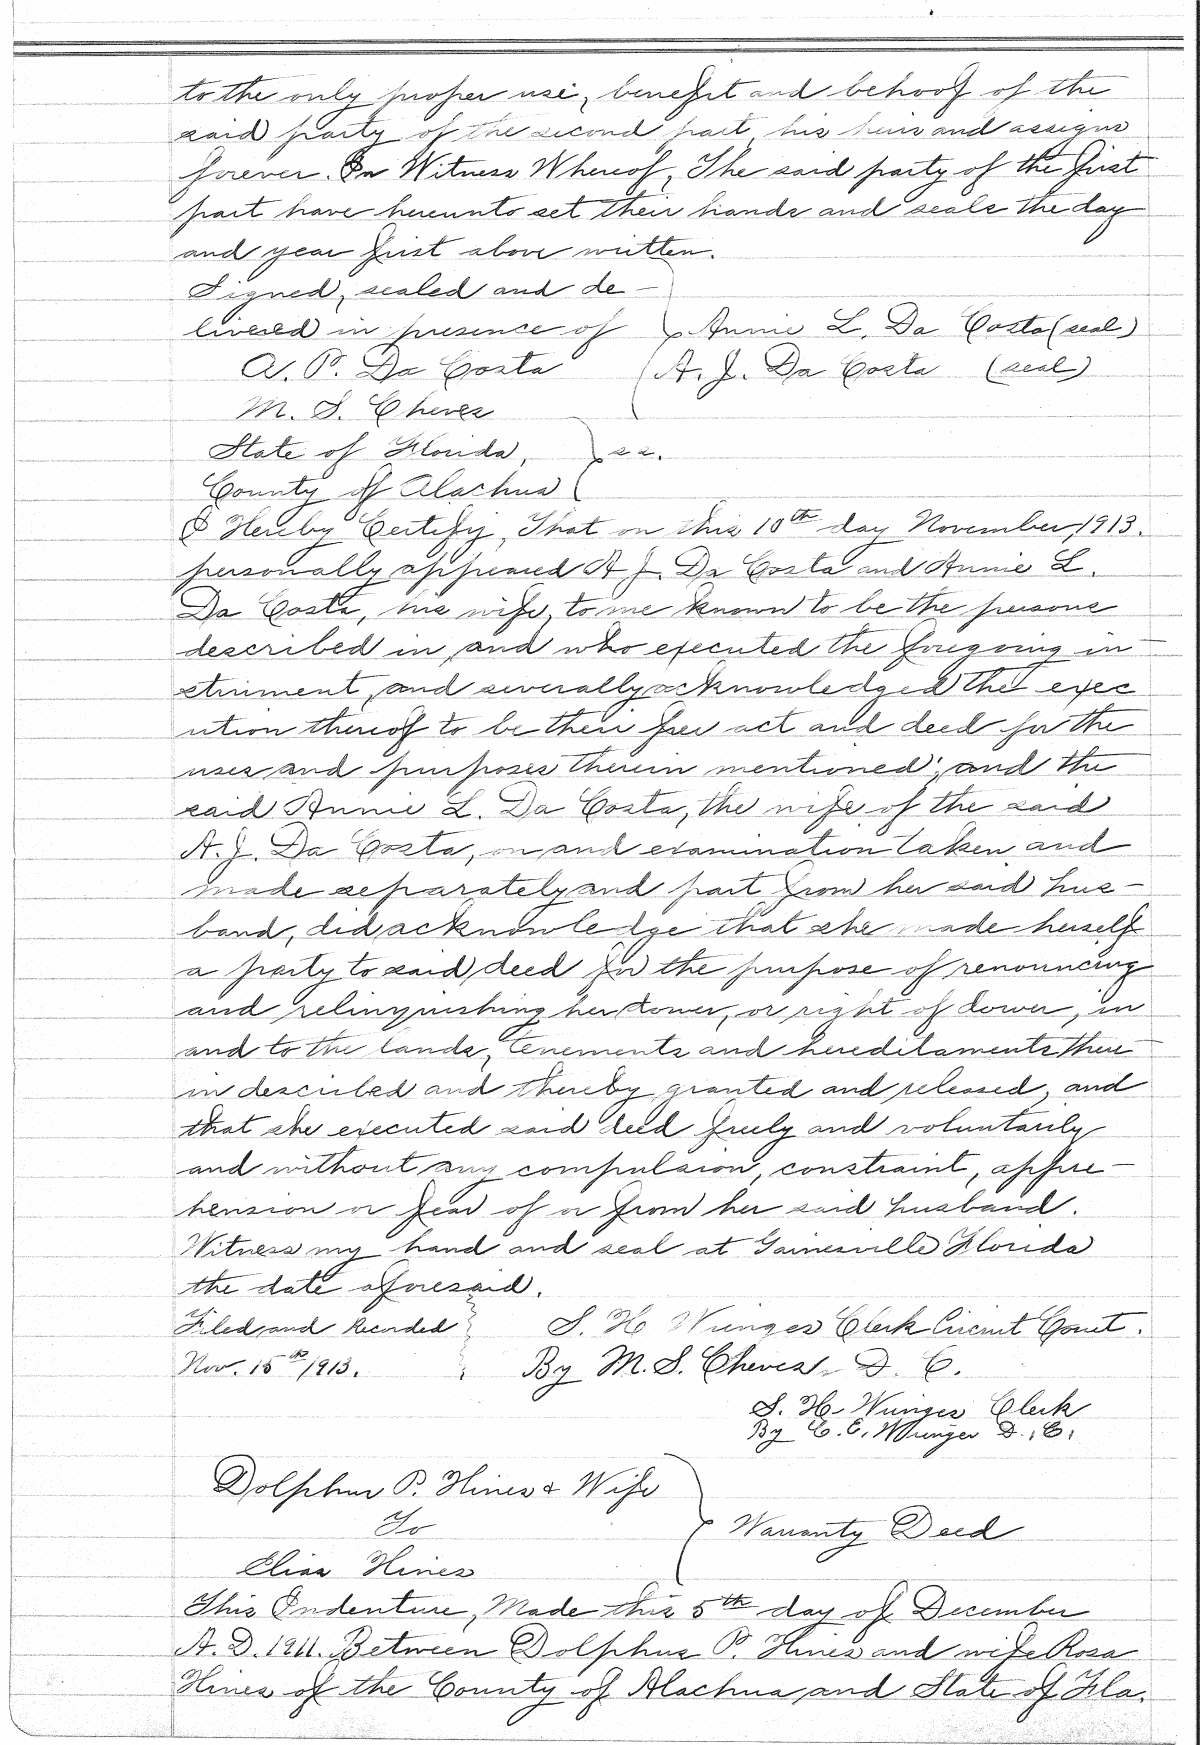 to the only proper use, benefit and behoof of the
said party of the second part, his heirs and assigns
forever. In Witness Whereof, The said party of the first
part have hereunto set their hands and seals the day
and year first above written.
Signed, sealed and de-
livered in presence of } Annie L. Da Costa (seal)
A. P. Da Costa A. J. Da Costa (seal)
M. S. Cheves
State of Florida, } ss.
County of Alachua
I Hereby Certify, That on this 10th day November, 1913.
personally appeared A J. Da Costa and Annie L.
Da Costa, his wife, to me known to be the persons
described in, and who executed the foregoing in
strument, and severally acknowledged the exec
ution thereof to be their free act and deed for the
uses and purposes therein mentioned; and the
said Annie L. Da Costa, the wife of the said
A. J. Da Costa, on and examination taken and
made separately and part from her said hus-
band, did acknowledge that she made herself
a party to said deed for the purpose of renouncing
and relinquishing her dower, or right of dower, in
and to the lands, tenements and hereditaments there
in described and thereby granted and released, and
that she executed said deed freely and voluntarily
and without any compulsion, constraint, appre-
hension or fear of or from her said husband.
Witness my hand and seal at Gainesville Florida
the date aforesaid.
Filed and Recorded S. H. Wienges Clerk Circuit Court.
Nov. 15th 1913. By M. S. Cheves. D. C.
S. H. Wienges Clerk
By E. E. Wienges D. C.
Dolphus P. Hines & Wife
To } Warranty Deed
Elias Hines
This Indenture, Made this 5th day of December
A. D. 1911. Between Dolphus P. Hines and wife Rosa
Hines of the County of Alachua and State of Fla.